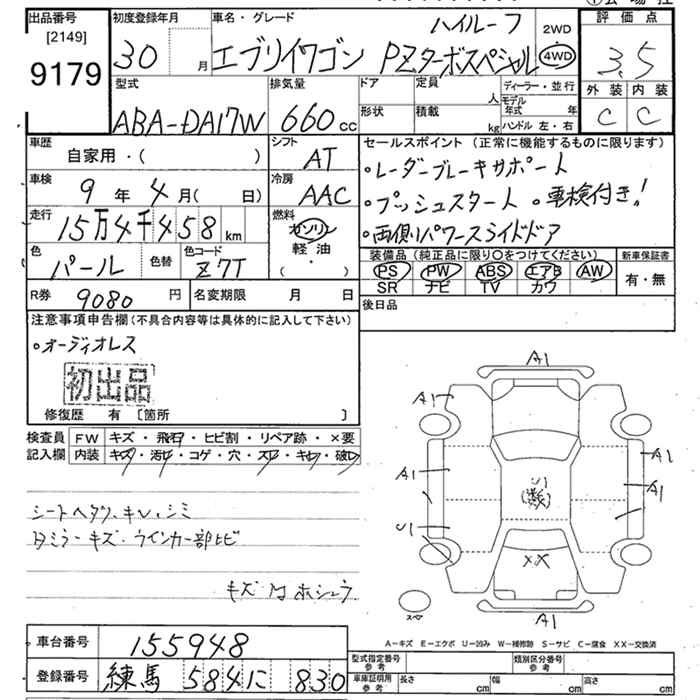 出品番号 初度登録年月 車名・グレード 評価点
[2149]
9179
30 月
エブリイワゴン PZターボスペシャル ハイルーフ
2WD
4WD
3.5
外装 内装
C C
型式 排気量 ドア 定員 人 ディーラー・並行
ABA-DA17W 660 cc 形状 積載 kg モデル年式 年
ハンドル 左・右
車歴 自家用・( )
シフト AT
車検 9 年 4 月( 日)
冷房 AAC
走行 15万4千458 km
燃料 ガソリン 軽油 ・ ( )
色 パール 色替 色コード Z7T
R券 9080 円 名変期限 月 日
セールスポイント (正常に機能するものに限ります)
・レーダーブレーキサポート
・プッシュスタート ・車検付き!
・両側パワースライドドア
装備品(純正品に限り○をつけてください) 新車保証書
PS PW ABS エアB AW 有・無
SR ナビ TV カワ
後日品
注意事項申告欄(不具合内容等は具体的に記入して下さい)
・オーディオレス
初出品
修復歴 有 [箇所 ]
検査員記入欄 FW キズ・飛石・ヒビ割・リペア跡・×要
内装 キズ・汚レ・コゲ・穴・スレ・キレ・破レ
シートヘタリ、キレ、シミ
Dミラーキズ・ウインカー部ヒビ
A1
A1
A1
A1
A1
U1
U1
XX
A1
スペア
A-キズ E-エクボ U-凹み W-補修跡 S-サビ C-腐食 XX-交換済
車台番号 155948
登録番号 練馬 584 に 830
型式指定番号 参考 類別区分番号 参考
車庫証明用 参考 長さ cm 幅 cm 高さ cm